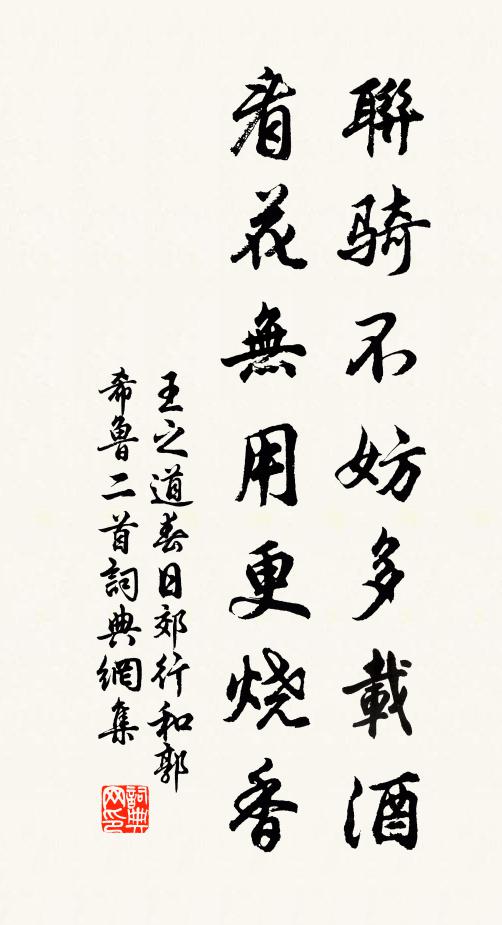 聯騎不妨多載酒
看花無用更烧香
王之道春日郊行和郭
希魯二首詞典網集
詞典网印